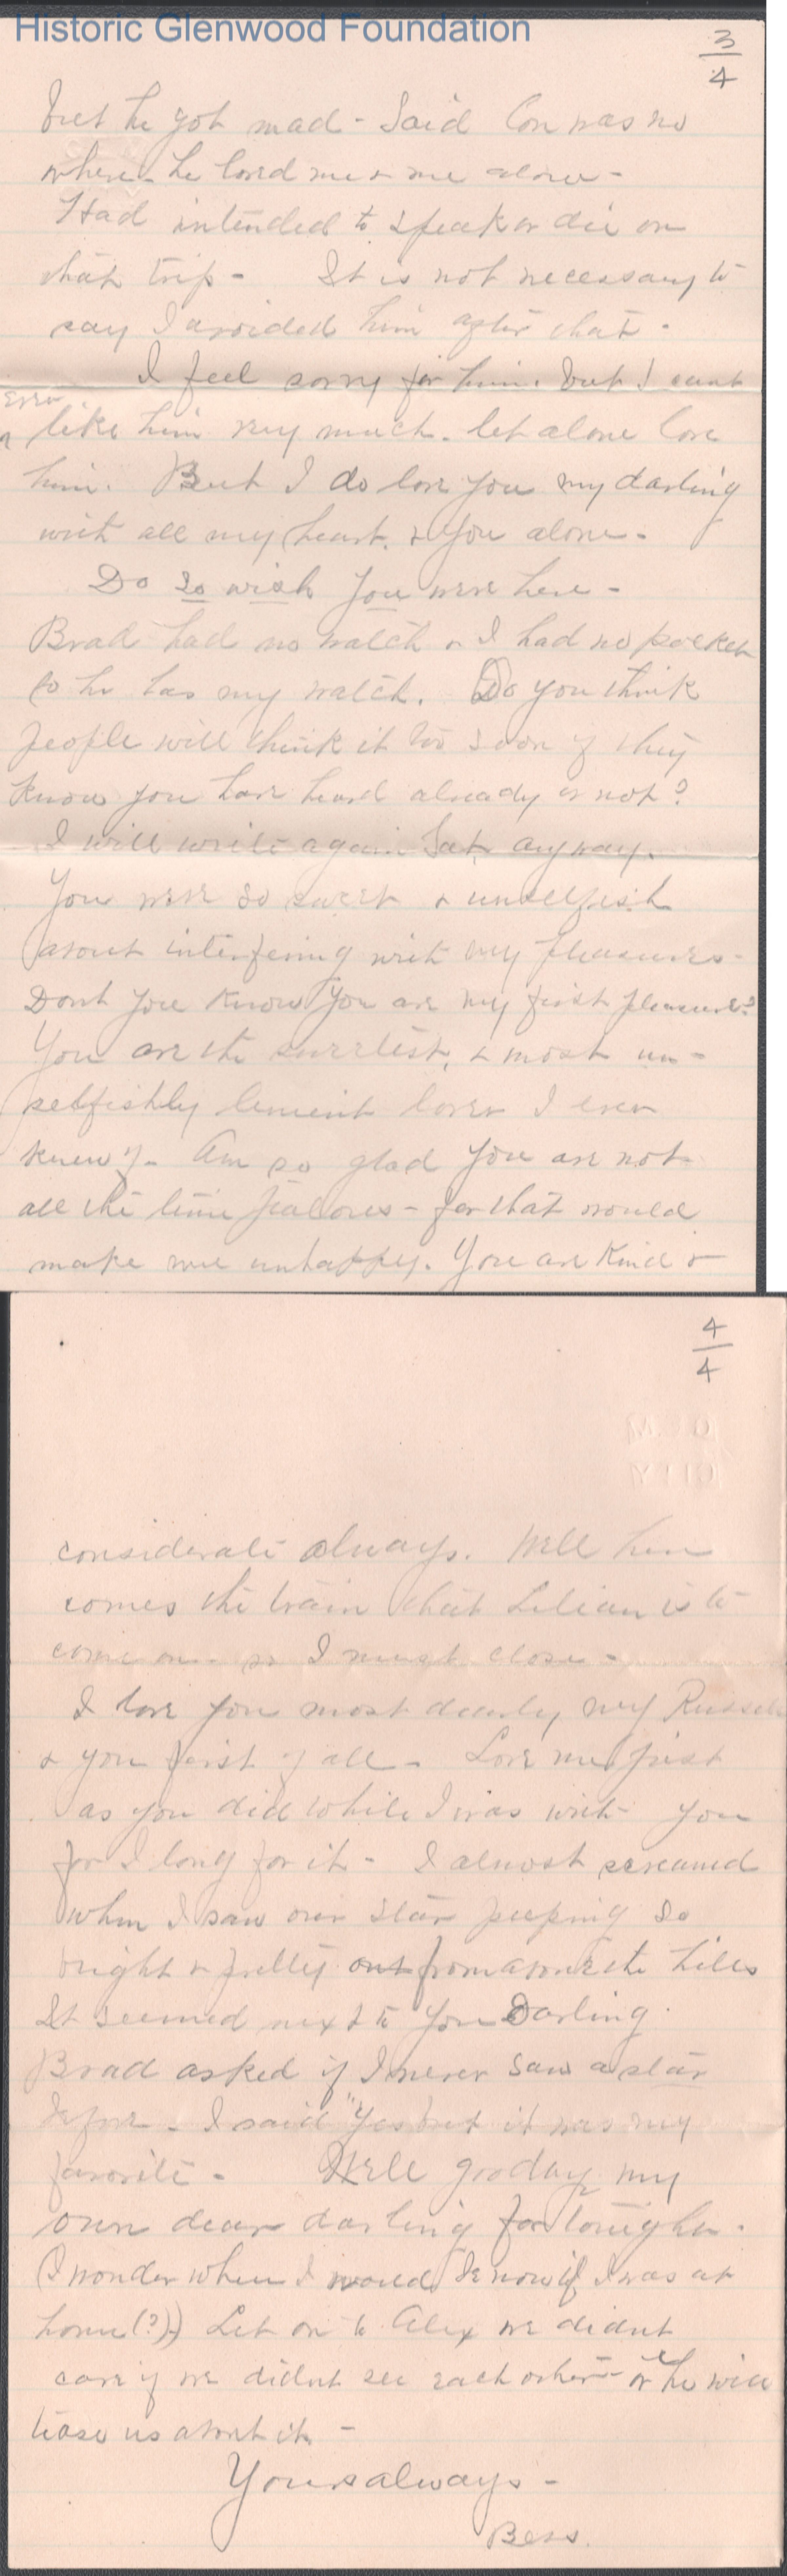 Historic Glenwood Foundation
3/4
but he got mad - Said Con was no
where - he loved me & me alone -
Had intended to speak or die on
that trip - It is not necessary to
say I avoided him after that -
I feel sorry for him. but I cant
even
like him very much. let alone love
him. But I do love you my darling
with all my heart. & you alone -
Do so wish you were here -
Brad had no watch & I had no pocket
so he has my watch. Do you think
people will think it too soon if they
know you have heard already or not?
I will write again Sat. anyway.
You were so sweet & unselfish
about interfering with my pleasures -
Dont you know you are my first pleasure?
You are the sweetest, & most un-
selfishly lenient lover I ever
knew of - Am so glad you are not
all the time jealous - for that would
make me unhappy. You are kind &
4/4
considerate always. Well here
comes the train that Lilian is to
come on - so I must close -
I love you most dearly, my Russell
& you first of all - Love me just
as you did while I was with you
for I long for it - I almost screamed
when I saw our star peeping so
bright & pretty out from above the hills
It seemed next to you Darling.
Brad asked if I never saw a star
before - I said "Yes but it was my
favorite - Well goodby my
own dear darling for tonight.
(I wonder when I would know if I was at
home (?)) Let on to Alex we didnt
care if we didnt see each other - or he will
tease us about it -
Yours always -
Bess.